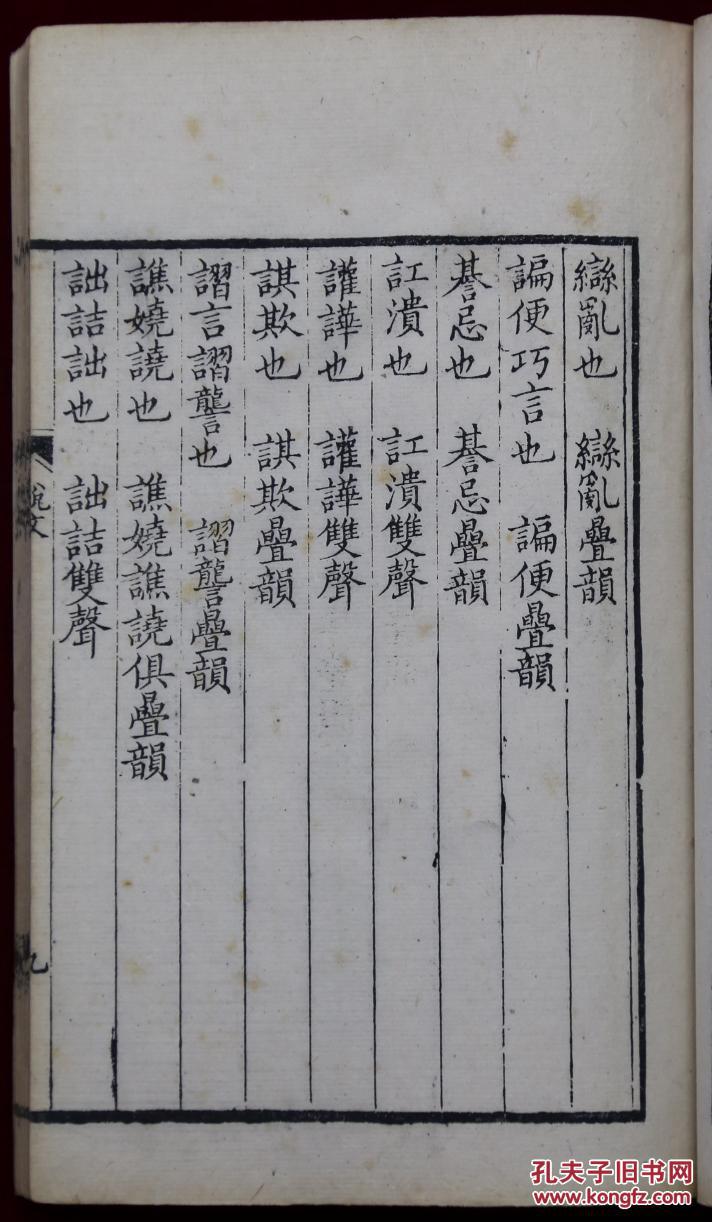 䜌亂也　䜌亂疊韻
諞便巧言也　諞便疊韻
諅忌也　諅忌疊韻
訌潰也　訌潰雙聲
讙譁也　讙譁雙聲
諆欺也　諆欺疊韻
謵言謵讋也　謵讋疊韻
譙嬈譊也　譙嬈譙譊俱疊韻
詘詰詘也　詘詰雙聲
說文
九
孔夫子旧书网
www.kongfz.com